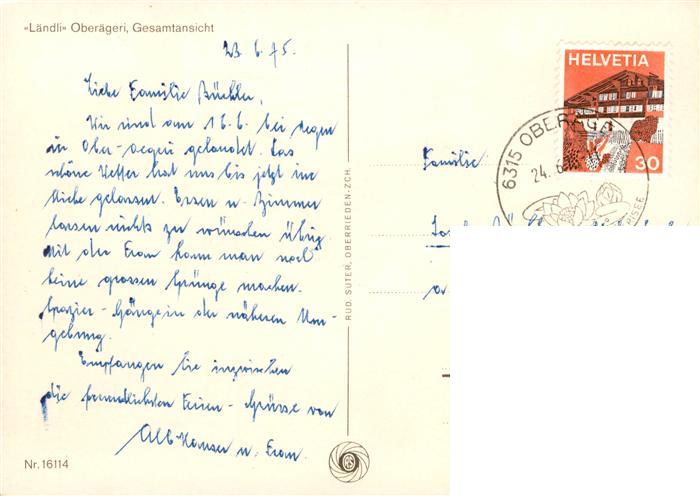 «Ländli» Oberägeri, Gesamtansicht
23.6.75.
Liebe Familie Büchler,
Wir sind am 16.6. bei regen
in Ober-aegeri gelandet. Das
schöne Wetter hat uns bis jetzt im
Stiche gelassen. Essen u. Zimmer
lassen nichts zu wünschen übrig.
Mit der Frau kann man noch
keine grossen Sprünge machen.
Spazier-Gänge in der näheren Um-
gebung.
Empfangen Sie inzwischen
die freundlichsten Ferien-Grüsse von
Alb. Hauser u. Frau.
Nr. 16114
RUD. SUTER, OBERRIEDEN-ZCH.
RS
HELVETIA
30
6315 OBERÄGERI
24.6.
Familie